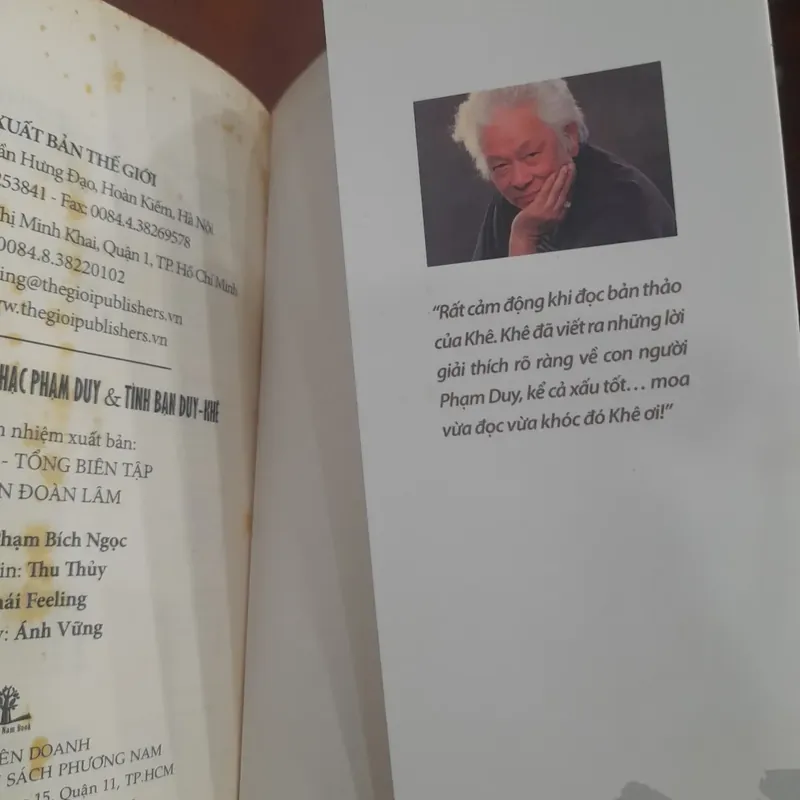 XUẤT BẢN THẾ GIỚI
Hưng Đạo, Hoàn Kiếm, Hà Nội
253841 - Fax: 0084.4.38269578
Minh Khai, Quận 1, TP. Hồ Chí Minh
0084.8.38220102
ing@thegioipublishers.vn
www.thegioipublishers.vn
PHẠM DUY & TÌNH BẠN DUY-KHÊ
nhiệm xuất bản:
- TỔNG BIÊN TẬP
ĐOÀN LÂM
Phạm Bích Ngọc
in: Thu Thủy
Feeling
: Ánh Vững
Nam Book
DOANH
SÁCH PHƯƠNG NAM
15, Quận 11, TP.HCM
“Rất cảm động khi đọc bản thảo
của Khê. Khê đã viết ra những lời
giải thích rõ ràng về con người
Phạm Duy, kể cả xấu tốt... moa
vừa đọc vừa khóc đó Khê ơi!”